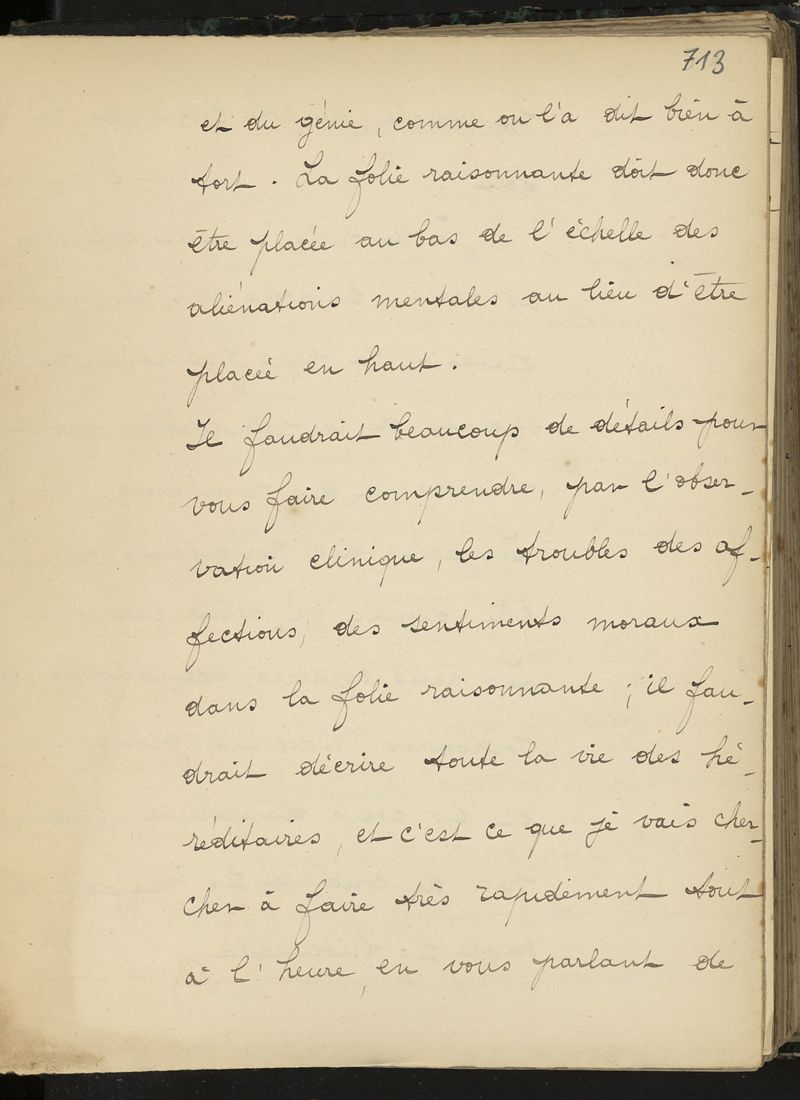 713
et du génie, comme on l'a dit bien à
tort. La folie raisonnante doit donc
être placée au bas de l'échelle des
aliénations mentales au lieu d'être
placée en haut.
Il faudrait beaucoup de détails pour
vous faire comprendre, par l'obser-
vation clinique, les troubles des af-
fections, des sentiments moraux
dans la folie raisonnante ; il fau-
drait décrire toute la vie des hé-
réditaires, et c'est ce que je vais cher-
cher à faire très rapidement tout
à l'heure, en vous parlant de